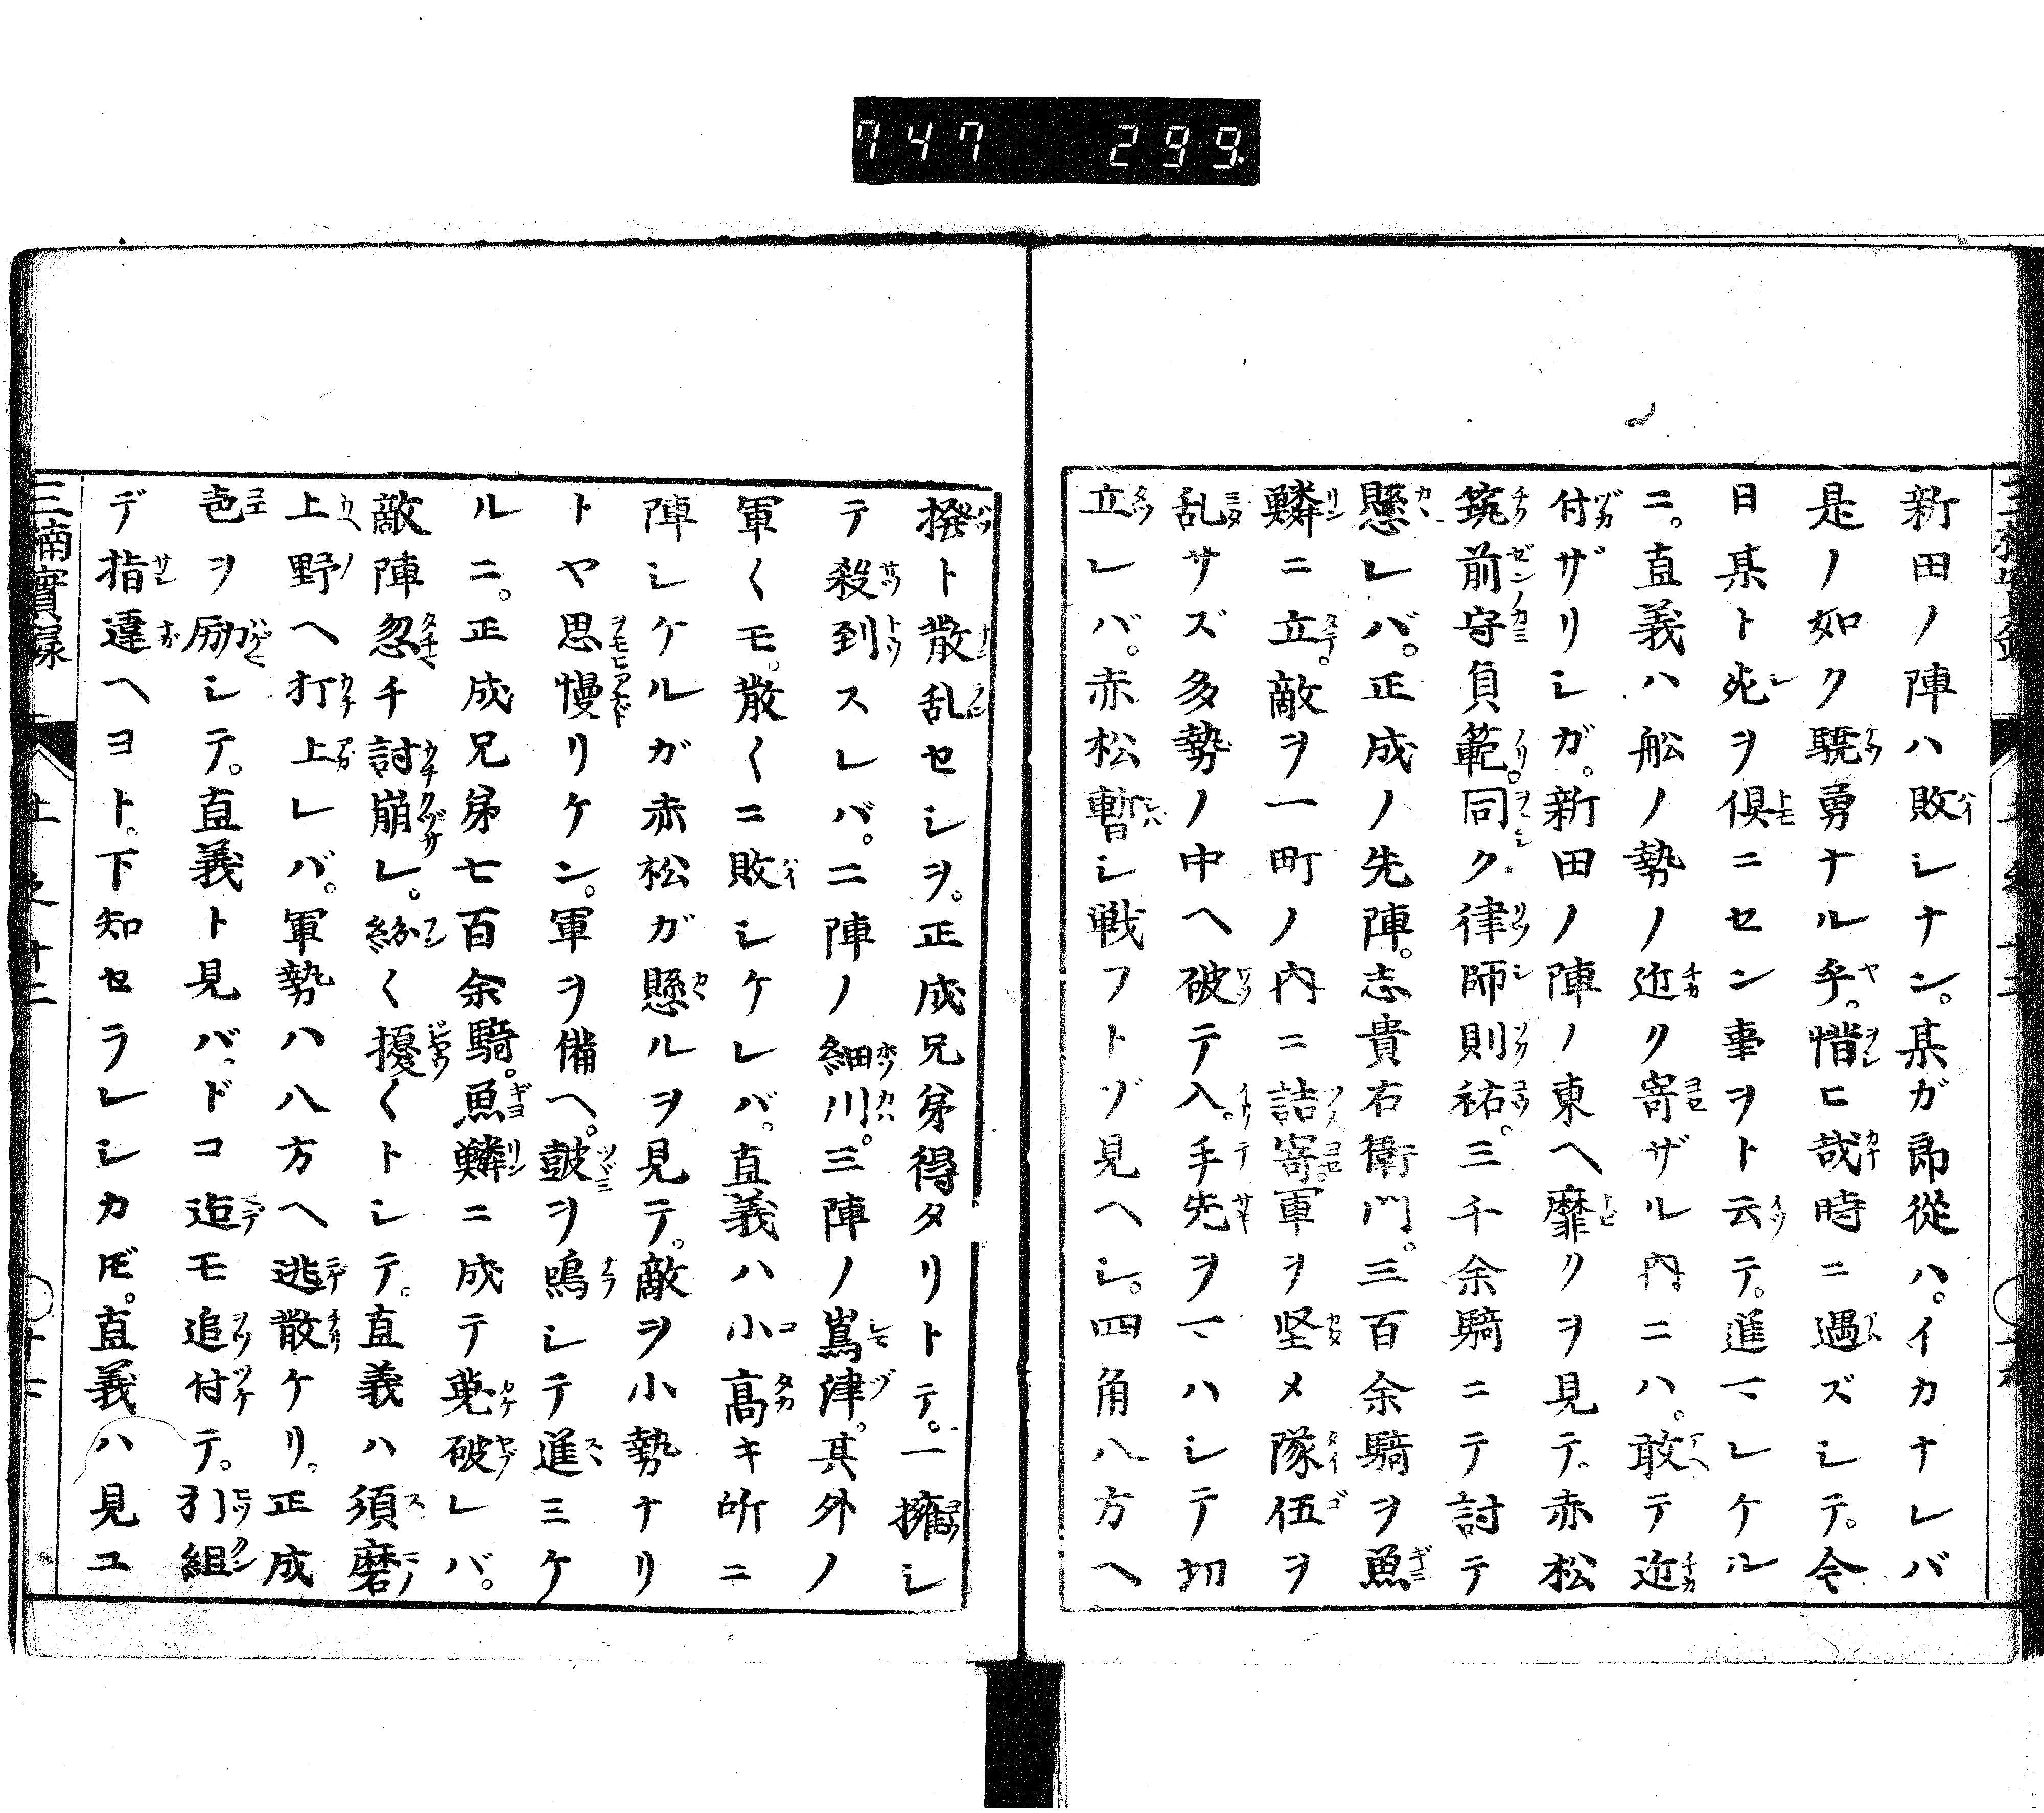 747 299
新田ノ陣ハ敗シナン。某ガ郎從ハ。イカナレバ
是ノ如ク驍勇ナル乎。惜ヒ哉時ニ遇ズシテ。今
日某ト死ヲ倶ニセン事ヲト云テ。進マレケル
ニ。直義ハ舩ノ勢ノ近ク寄ザル内ニハ。敢テ近
付ザリシガ。新田ノ陣ノ東ヘ靡クヲ見テ。赤松
筑前守負範。同ク律師則祐。三千余騎ニテ討テ
懸レバ。正成ノ先陣。志貴右衛門。三百余騎ヲ魚
鱗ニ立。敵ヲ一町ノ内ニ詰寄。軍ヲ坚メ隊伍ヲ
乱サズ多勢ノ中ヘ破テ入。手先ヲマハシテ切
立レバ。赤松暫シ戦フトゾ見ヘシ。四角八方ヘ
撥ト散乱セシヲ。正成兄弟得タリトテ。一擁シ
テ殺到スレバ。二陣ノ細川。三陣ノ嶌津。其外ノ
軍〱モ。散〱ニ敗シケレバ。直義ハ小高キ所ニ
陣シケルガ赤松ガ懸ルヲ見テ。敵ヲ小勢ナリ
トヤ思慢リケン。軍ヲ備ヘ。鼓ヲ鳴シテ進ミケ
ルニ。正成兄弟七百余騎。魚鱗ニ成テ蒐破レバ。
敵陣忽チ討崩レ。紛〱擾〱トシテ。直義ハ須磨
上野ヘ打上レバ。軍勢ハ八方ヘ逃散ケリ。正成
色ヲ励シテ。直義ト見バ。ドコ迠モ追付テ。引組
デ指違ヘヨト。下知セラレシカ𪜈。直義ハ見ユ
三楠實録 上之十二